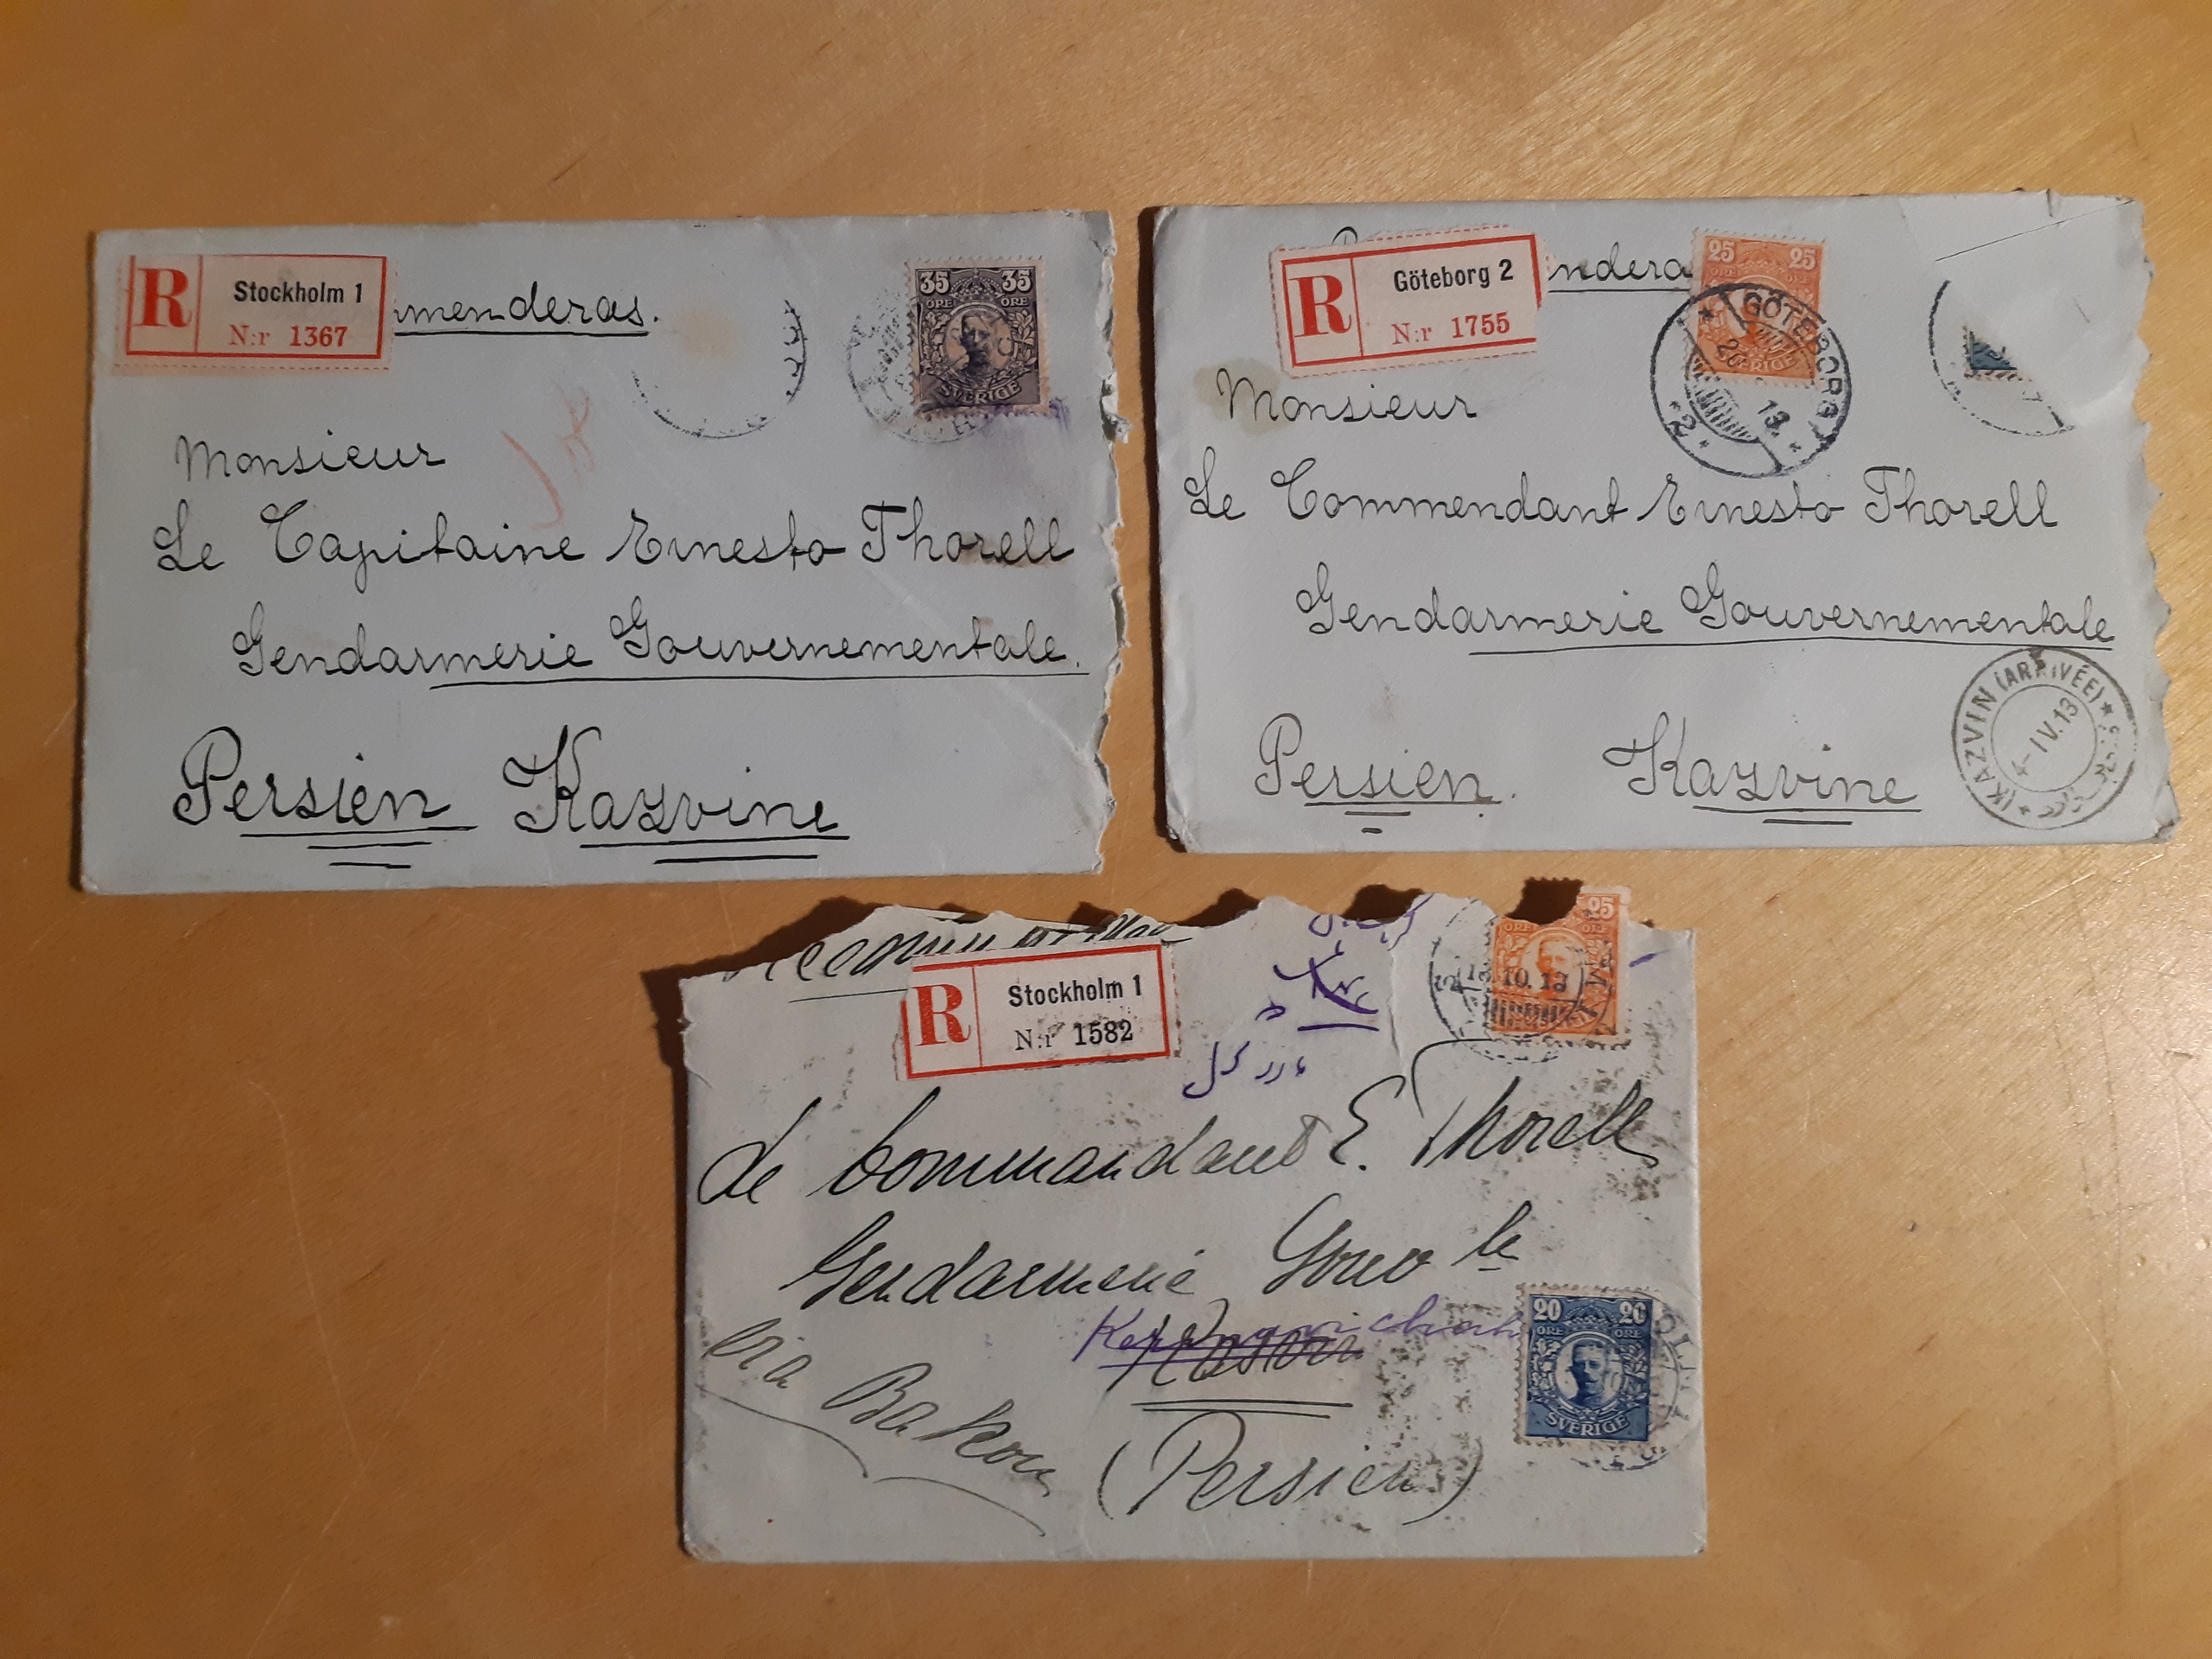 R Stockholm 1
N:r 1367
mmenderas.
35 35
ÖRE ÖRE
SVERIGE
Monsieur
Le Capitaine Ernesto Thorell
Gendarmerie Gouvernementale.
Persien Kazvine
R Göteborg 2
N:r 1755
ndera
25 25
ÖRE ÖRE
SVERIGE
GÖTEBORG
13.
2
Monsieur
Le Commendant Ernesto Thorell
Gendarmerie Gouvernementale
Persien. Kazvine
KAZVIN (ARRIVÉE)
4-IV.13
R Stockholm 1
N:r 1582
25
ÖRE ÖRE
10.13
Le Commandant E. Thorell
Gendarmerie Gouv le
via Bakou
(Persien)
20 20
ÖRE ÖRE
SVERIGE